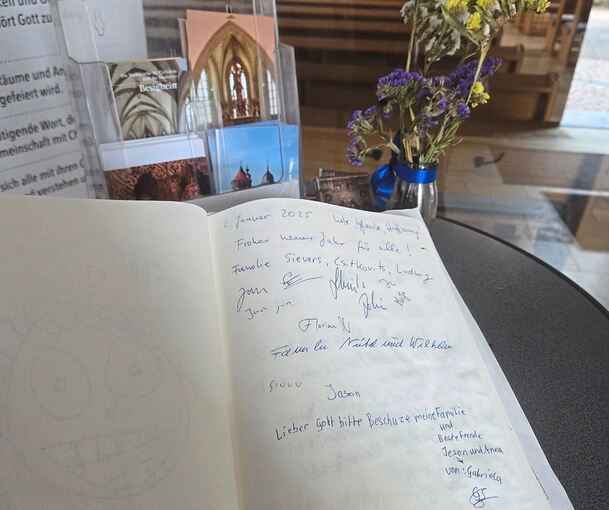 ört Gott zu
Räume und An
gefeiert wird.
tigende Wort, d
emeinschaft mit Ch
sich alle mit ihren
d verstehen
Besigheim
2. Januar 2025 Liebe, Glaube, Hoffnung
Frohes neues Jahr für alle!
Familie Sievers, Csitkovits, Ludwig
Jan
Jan jun.
Florian W
Familie und
Siuuu
Jason
Lieber Gott bitte Beschuze meine Familie
und
Beste freunde
Jeson und Anna
von: Gabriela